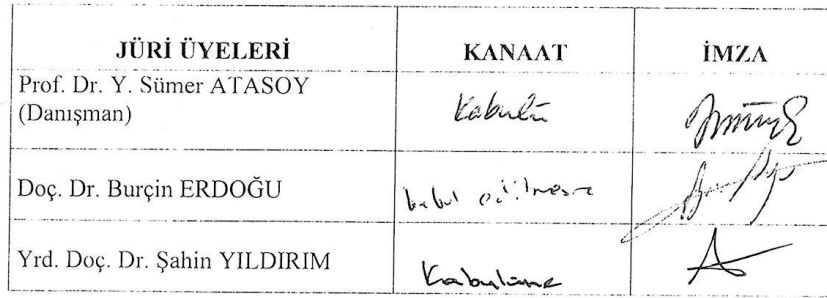 JÜRİ ÜYELERİ KANAAT İMZA
Prof. Dr. Y. Sümer ATASOY
(Danışman) Kabulü
Doç. Dr. Burçin ERDOĞU kabul edilmesi
Yrd. Doç. Dr. Şahin YILDIRIM Kabulüne